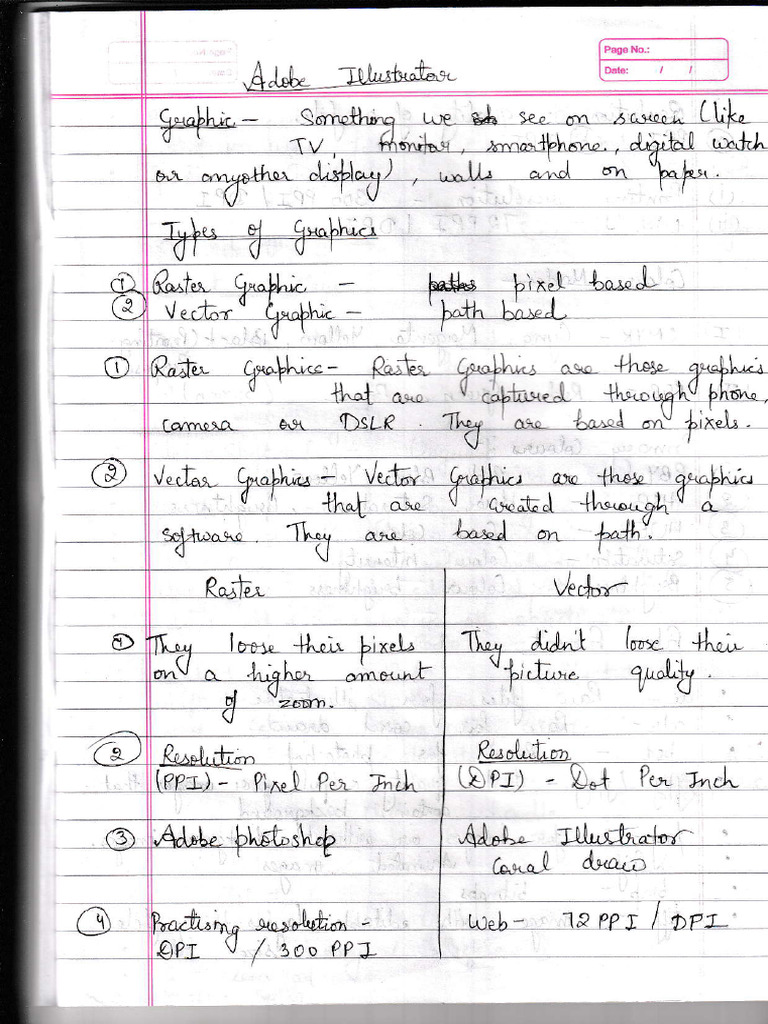 Page No.:
Date: / /
Adobe Illustrator
Graphic - Something we see on screen (like
TV, monitor, smartphone, digital watch
or anyother display), walls and on paper.
Types of Graphics
① Raster Graphic - pixel based
② Vector Graphic - path based
① Raster Graphics - Raster Graphics are those graphics
that are captured through phone,
camera or DSLR. They are based on pixels.
② Vector Graphics - Vector Graphics are those graphics
that are created through a
software. They are based on path.
Raster Vector
① They loose their pixels They didn't loose their
on a higher amount picture quality.
of zoom.
② Resolution Resolution
(PPI) - Pixel Per Inch (DPI) - Dot Per Inch
③ Adobe photoshop Adobe Illustrator
Coral draw
④ Practising resolution - Web - 72 PPI / DPI
DPI / 300 PPI